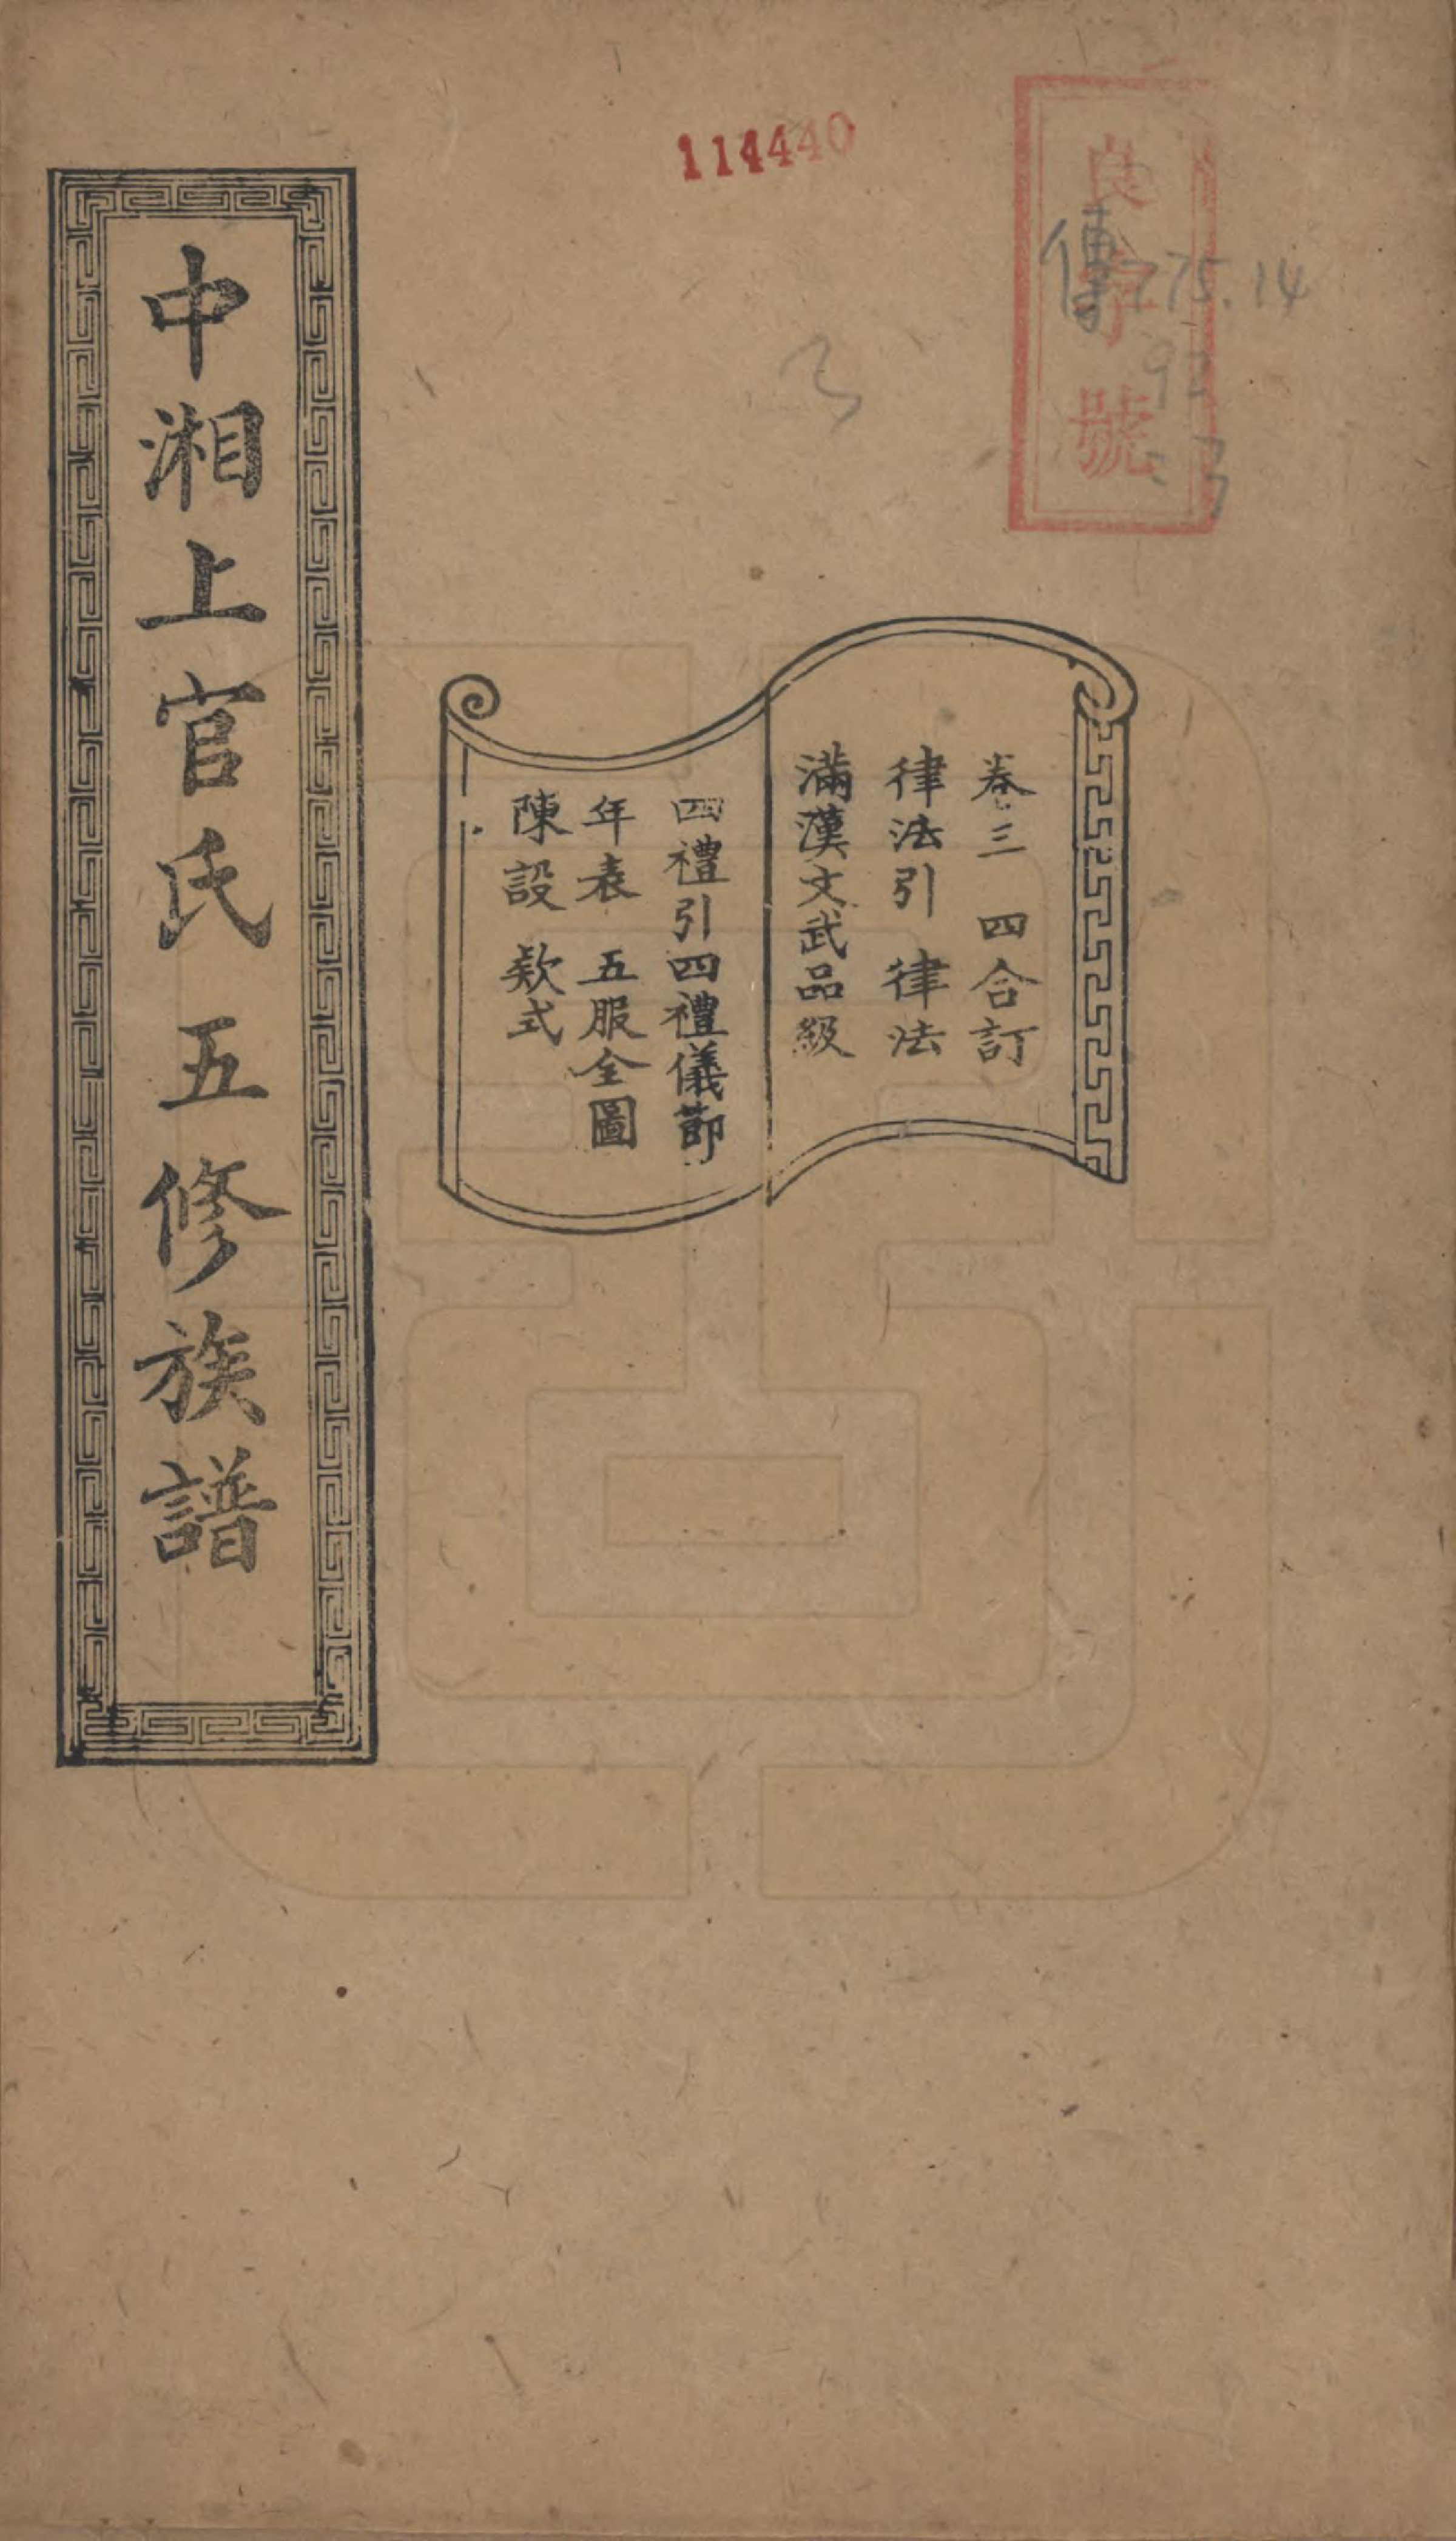 114440
良字號
傳775.14
92
:3
卷三 四合訂
律法引 律法
滿漢文武品級
四禮引四禮儀節
年表 五服全圖
陳設 欵式
中湘上官氏五修族譜